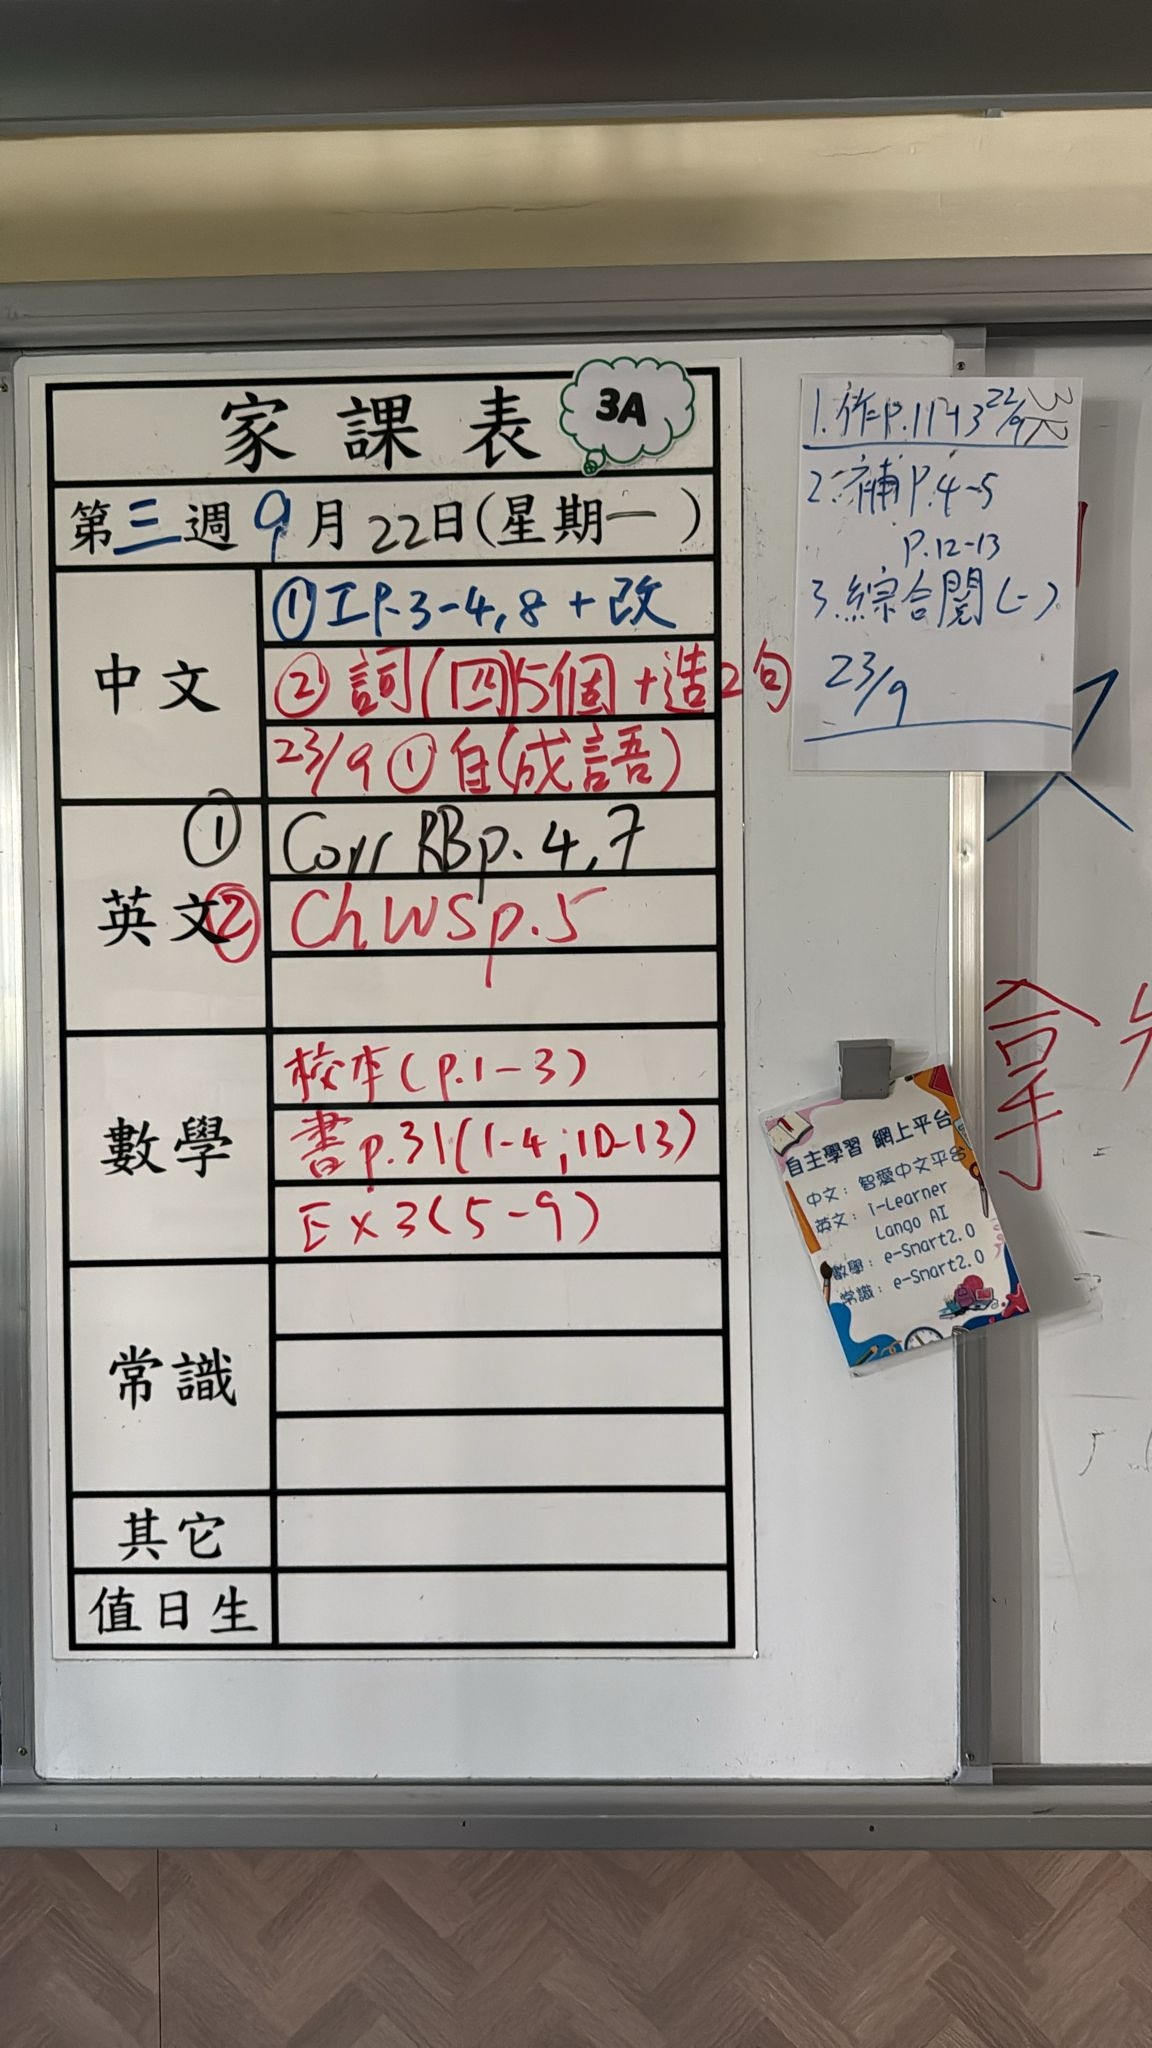 家課表
3A
第三週 9月22日(星期一)
中文
①工P.3-4,8+改
②詞(四)5個+造2句
23/9 ①自(成語)
英文
① Corr RB p.4,7
② Ch WS p.5
數學
校本(p.1-3)
書p.31(1-4;10-13)
Ex3(5-9)
常識
其它
值日生
1.作P.
22/9
2.補P.4-5
P.12-13
3.綜合閱(一)
23/9
自主學習 網上平台
中文：智愛中文平台
英文：i-Learner
Lango AI
數學：e-Smart2.0
常識：e-Smart2.0
拿